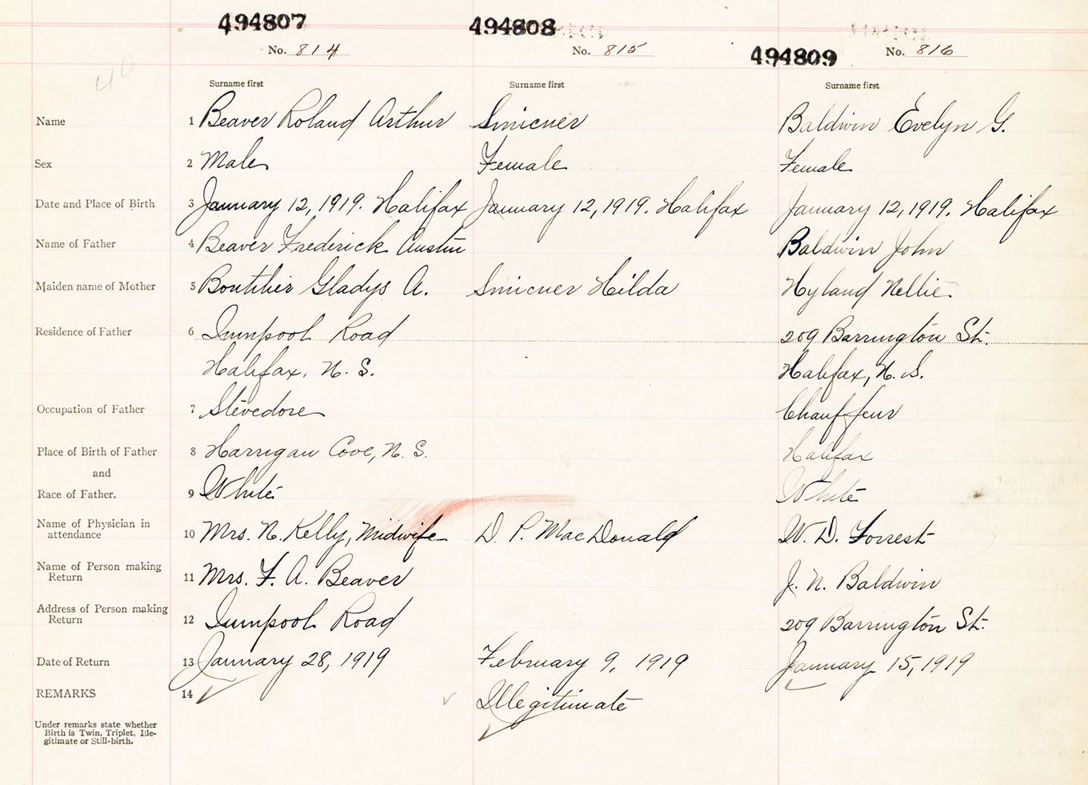 494807 494808 494809
No. 814 No. 815 No. 816
Surname first Surname first Surname first
Name 1 Beaver Roland Arthur Smicner Baldwin Evelyn G.
Sex 2 Male Female Female
Date and Place of Birth 3 January 12, 1919. Halifax January 12, 1919. Halifax January 12, 1919. Halifax
Name of Father 4 Beaver Frederick Austin Baldwin John
Maiden name of Mother 5 Boutilier Gladys A. Smicner Hilda Hyland Nellie
Residence of Father 6 Road 209 Barrington St.
Halifax, N. S. Halifax, N. S.
Occupation of Father 7 Stevedore Chauffeur
Place of Birth of Father 8 Harrigan Cove, N. S. Halifax
and
Race of Father. 9 White White
Name of Physician in
attendance 10 Mrs. N. Kelly, Midwife D. P. MacDonald W. D. Forrest
Name of Person making
Return 11 Mrs. F. A. Beaver J. N. Baldwin
Address of Person making
Return 12 Road 209 Barrington St.
Date of Return 13 January 28, 1919 February 9, 1919 January 15, 1919
REMARKS 14 Illegitimate
Under remarks state whether
Birth is Twin, Triplet, Ille-
gitimate or Still-birth.